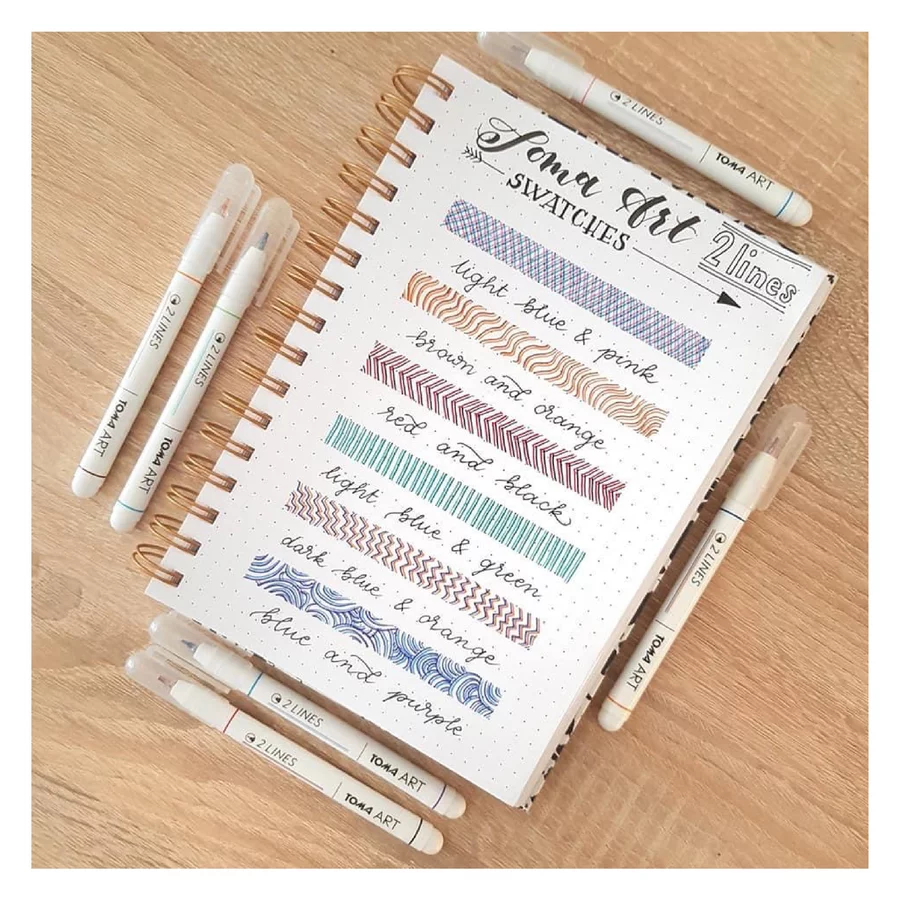 Toma Art
SWATCHES
2 lines
light blue & pink
brown and orange
red and black
light blue & green
dark blue & orange
blue and purple
2 LINES TOMA ART
2 LINES TOMA ART
2 LINES TOMA ART
2 LINES TOMA ART
2 LINES TOMA ART
2 LINES TOMA ART